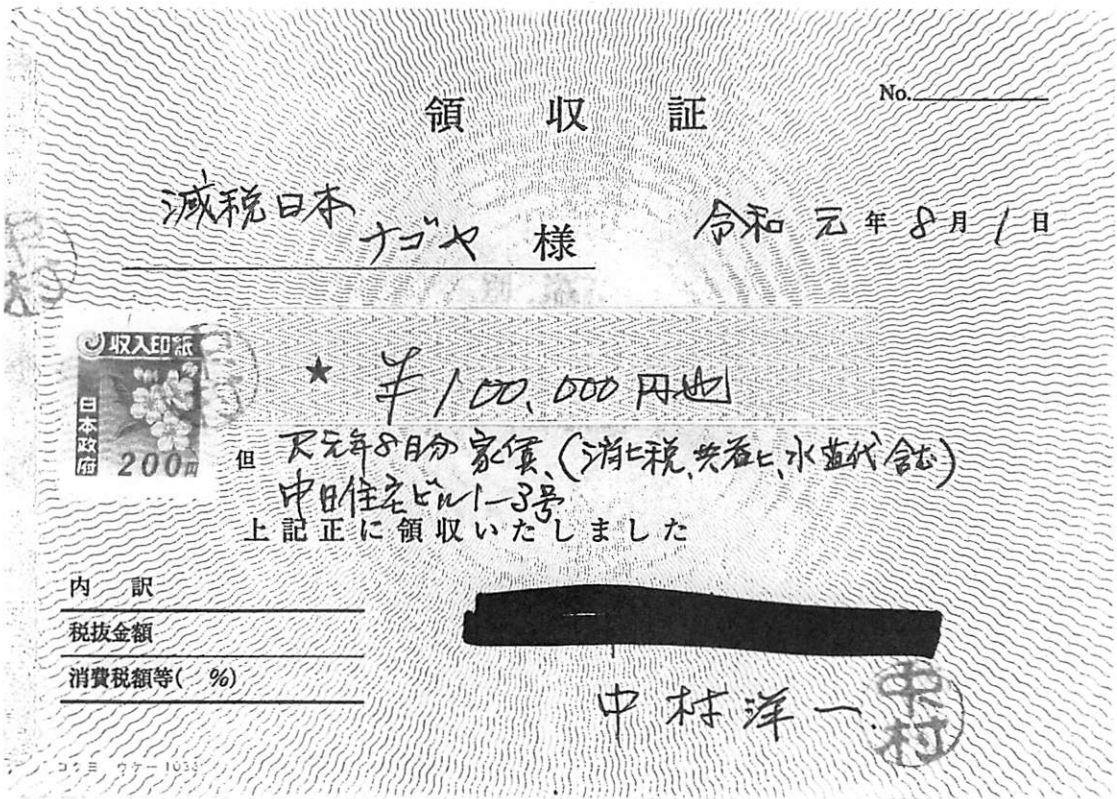 領収証
No.
減税日本
ナゴヤ 様
令和 元 年 8 月 1 日
収入印紙
日本政府
200円
★ ¥100,000円也
但 R元年8月分 家賃、(消ヒ税、共益ヒ、水道代含む)
中日住宅ビル1-3号
上記正に領収いたしました
内訳
税抜金額
消費税額等( %)
中村洋一
中村
コクヨ ウケ-1033